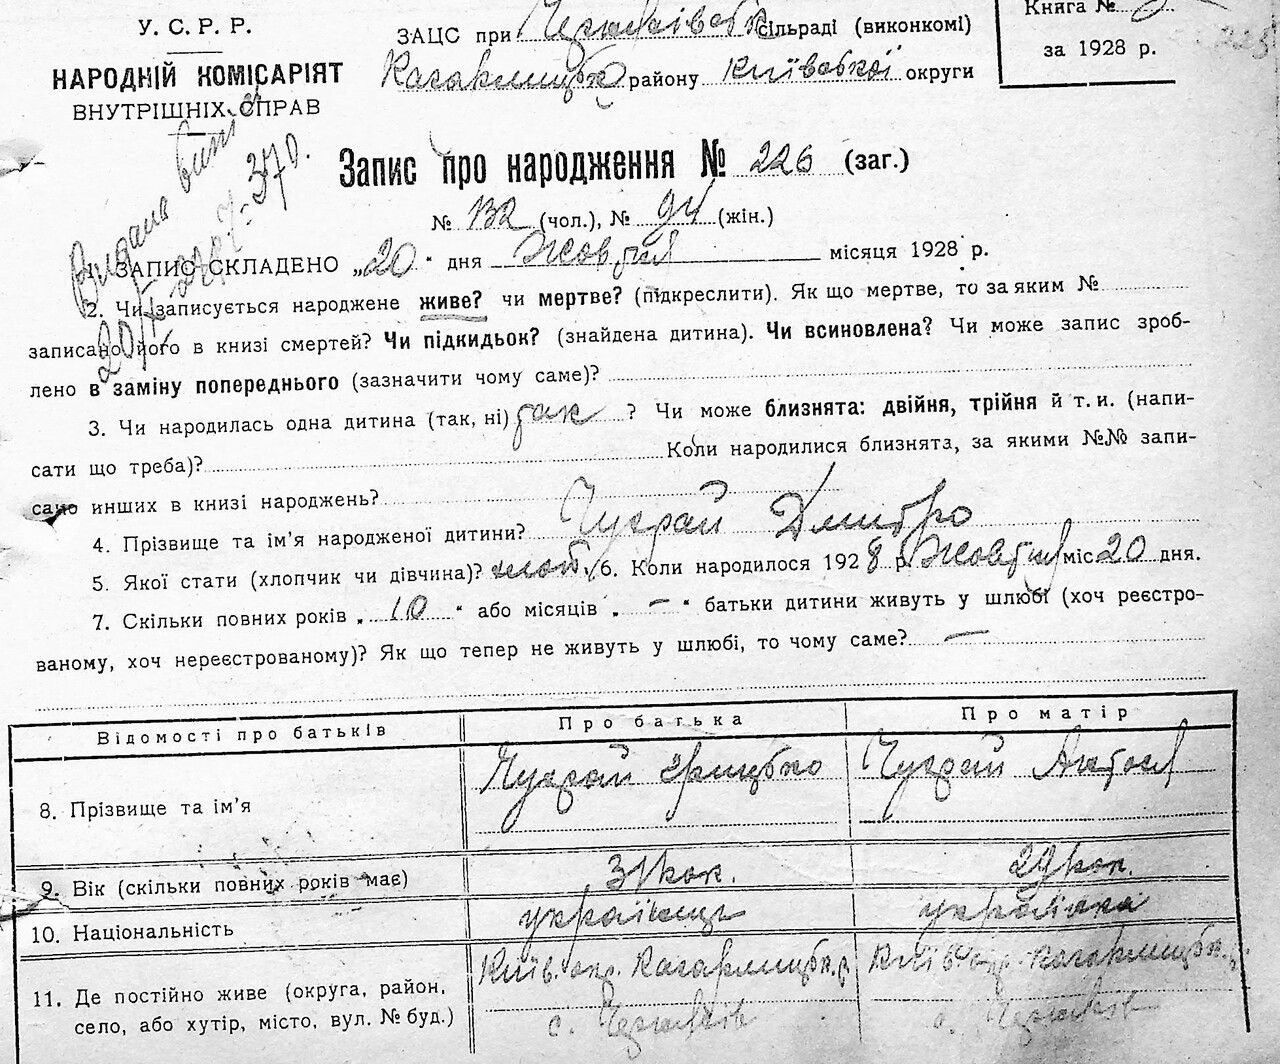 У.С.Р.Р.
НАРОДНІЙ КОМІСАРІЯТ
ВНУТРІШНІХ СПРАВ
ЗАЦС при сільраді (виконкомі)
Кагарлицько району Київської округи
Книга №
за 1928 р.
225
Видана
Запис про народження № 226 (заг.)
№ 132 (чол.), № 94 (жін.)
1. ЗАПИС СКЛАДЕНО „20“ дня Жовтня місяця 1928 р.
2. Чи записується народжене живе? чи мертве? (підкреслити). Як що мертве, то за яким №
записано його в книзі смертей? Чи підкидьок? (знайдена дитина). Чи всиновлена? Чи може запис зроб-
лено в заміну попереднього (зазначити чому саме)?
3. Чи народилась одна дитина (так, ні) так ? Чи може близнята: двійня, трійня й т. и. (напи-
сати що треба)? Коли народилися близнята, за якими №№ запи-
сано инших в книзі народжень?
4. Прізвище та ім’я народженої дитини? Чуграй Дмитро
5. Якої стати (хлопчик чи дівчина)? хлоп. 6. Коли народилося 1928 р. Жовтня міс 20 дня.
7. Скільки повних років „ 10 “ або місяців „ — “ батьки дитини живуть у шлюбі (хоч реєстро-
ваному, хоч нереєстрованому)? Як що тепер не живуть у шлюбі, то чому саме? —
Відомості про батьків Про батька Про матір
8. Прізвище та ім’я Чуграй Грицько Чуграй
9. Вік (скільки повних років має) 31 рок. 29 рок.
10. Національність українець українка
11. Де постійно живе (округа, район,
село, або хутір, місто, вул. № буд.)
Київ. окр. Кагарлицьк. р. Київ. окр. Кагарлицьк. р.
с. с.